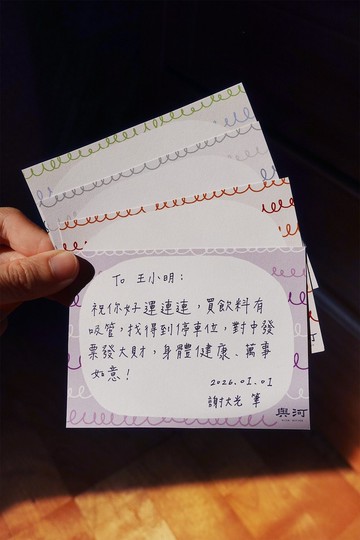 To 王小明：
祝你好運連連，買飲料有
吸管，找得到停車位，對中發
票發大財，身體健康、萬事
如意！
2026.01.01
謝大光 筆
與河